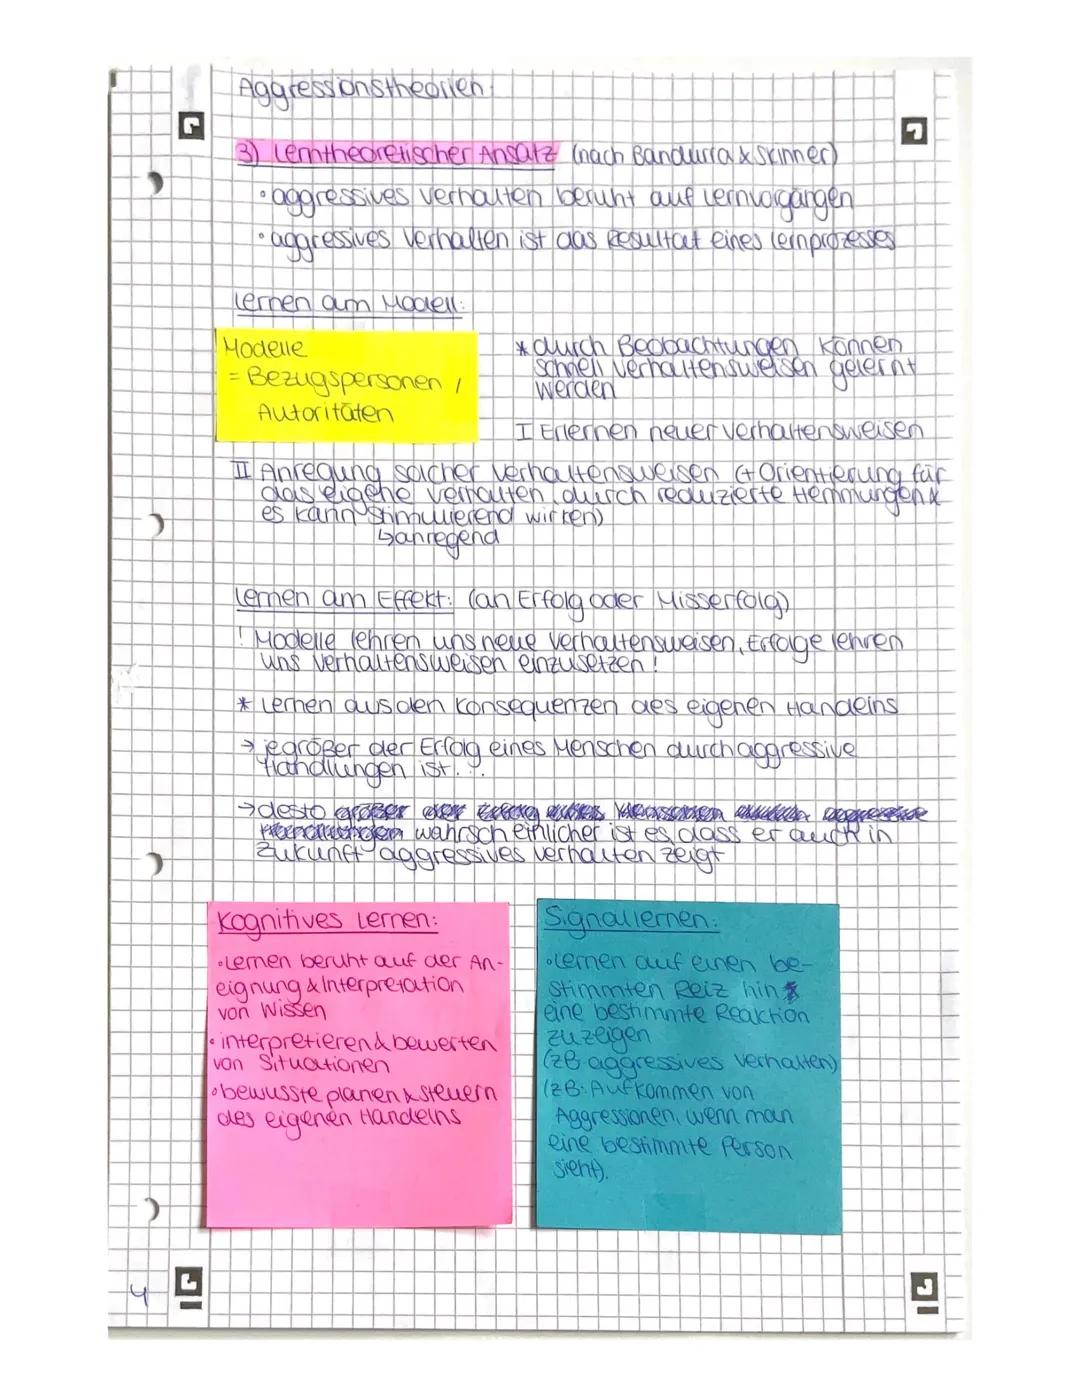 Aggressionstheorien:
3) Lerntheoretischer Ansatz (nach Bandurra & Skinner)
• aggressives Verhalten beruht auf Lernvorgängen
• aggressives Verhalten ist das Resultat eines Lernprozesses
Lernen am Modell:
Modelle
= Bezugspersonen /
Autoritäten
* durch Beobachtungen können
schnell Verhaltensweisen gelernt
werden
I Erlernen neuer Verhaltensweisen
II Anregung solcher Verhaltensweisen (+ Orientierung für
das eigene Verhalten durch reduzierte Hemmungen &
es kann stimulierend wirken)
↳ anregend
Lernen am Effekt: (an Erfolg oder Misserfolg)
! Modelle lehren uns neue Verhaltensweisen, Erfolge lehren
uns Verhaltensweisen einzusetzen !
* Lernen aus den Konsequenzen des eigenen Handelns
→ je größer der Erfolg eines Menschen durch aggressive
Handlungen ist...
→ desto
wahrscheinlicher ist es, dass er auch in
Zukunft aggressives Verhalten zeigt
Kognitives Lernen:
• Lernen beruht auf der An-
eignung & Interpretation
von Wissen
• interpretieren & bewerten
von Situationen
• bewusste planen & steuern
des eigenen Handelns
Signallernen:
• Lernen auf einen be-
stimmten Reiz hin
eine bestimmte Reaktion
zu zeigen
(zB aggressives Verhalten)
(zB: Aufkommen von
Aggressionen, wenn man
eine bestimmte Person
sieht).
4